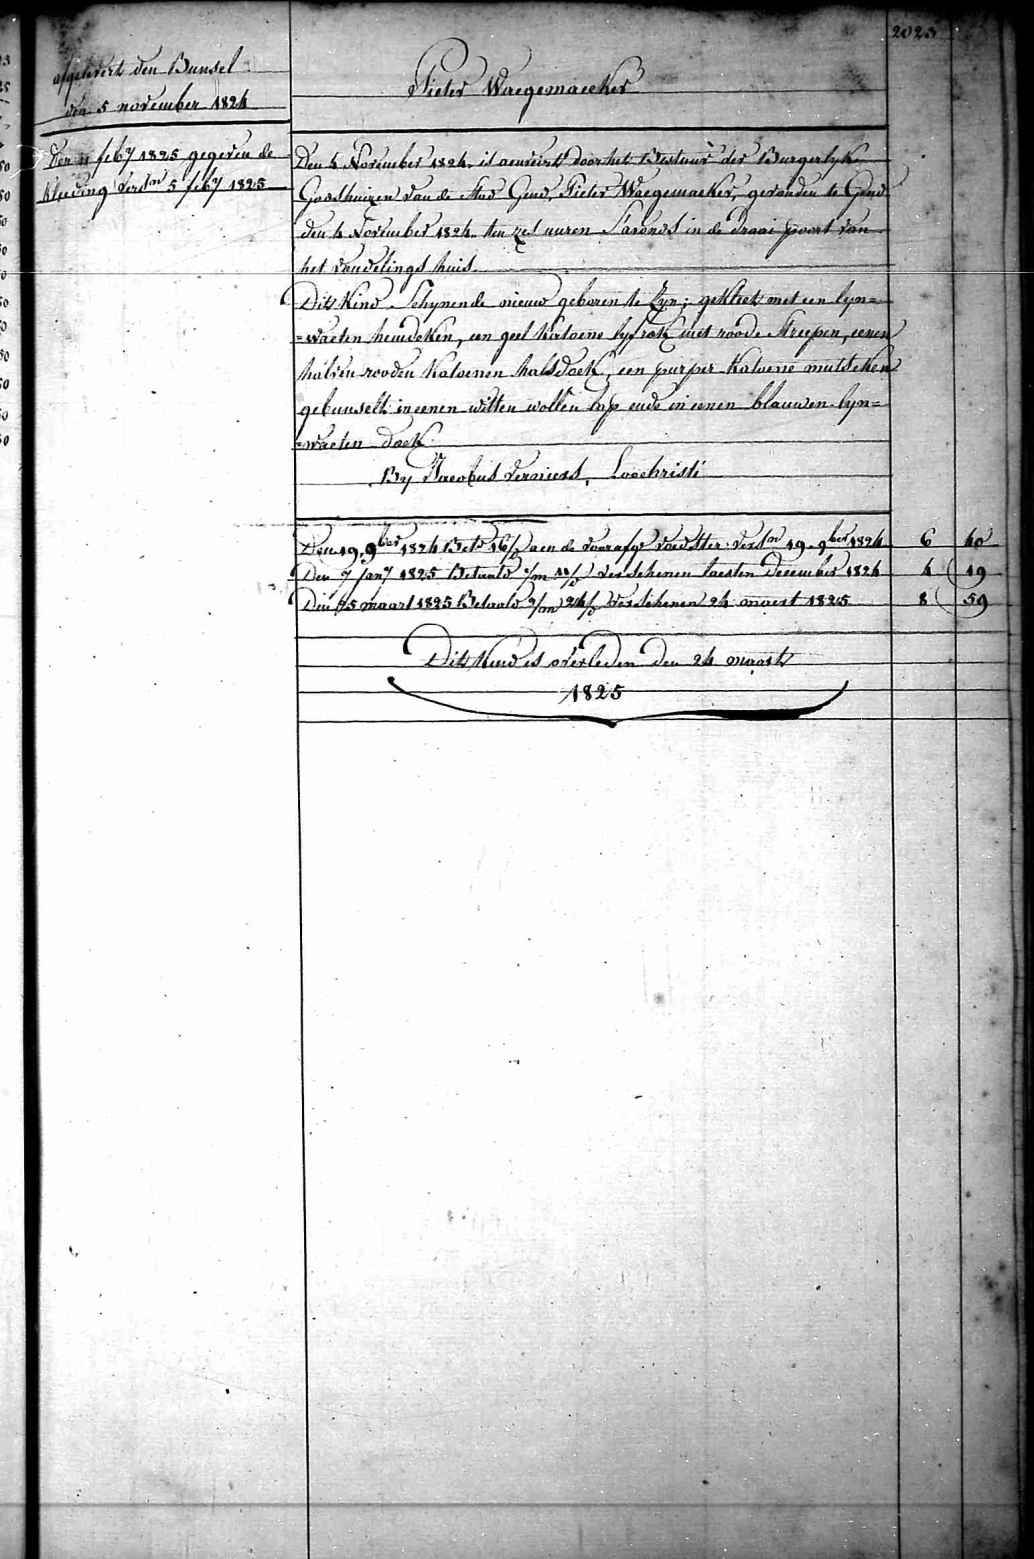 2023
afgelevert den Bunsel
den 5 november 1824
Den 11 feby 1825 gegeven de
kleeding versn 5 feby 1825
Pieter Waegemaeker
Den 4 November 1824 is aenveirt door het Bestuur der Burgerlyke
Godshuizen van de stad Gend, Pieter Waegemaeker, gevonden te Gend
den 4 November 1824 ten zes uuren s'avonds in de draai poort van
het vondelings huis.
Dit Kind Schynende nieuw geboren te Zyn; gekleet met een lyn=
=waeten hemdeken, een geel katoene lyfrok met roode streepen, eenen
halven rooden katoenen halsdoek, een purper katoene mutseken
gebunselt in eenen witten wollen lap ende in eenen blauwen lyn=
=waeten doek.
By Jacobus Verniers, Loochristi
Den 19. 9ber 1824 Betd 16/d aen de voorafge voedster versn 19. 9ber 1824 6 40
Den 7 Jany 1825 Betaald 1/m 11/d verschenen laesten december 1824 4 19
Den 15 maart 1825 Betaald 2/m 24/d verschenen 24 maert 1825 8 59
Dit Kind is overleden den 24 maart
1825